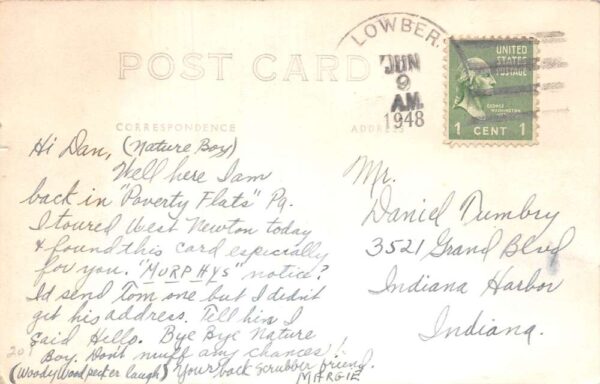 POST CARD
LOWBER
JUN
9
A.M.
1948
UNITED
STATES
POSTAGE
GEORGE
WASHINGTON
1 CENT 1
CORRESPONDENCE
ADDRESS
Hi Dan, (Nature Boy)
Well here I am
back in "Poverty Flats" Pa.
I toured West Newton today
& found this card especially
for you. "MURPHYS" notice?
I'd send Tom one but I didn't
get his address. Tell him I
said Hello. Bye Bye Nature
Boy. Don't muff any chances!
(Woody Woodpecker laugh) Your back scrubber friend.
MARGIE
20
Mr.
Daniel Dumbry
3521 Grand Blvd
Indiana Harbor
Indiana.